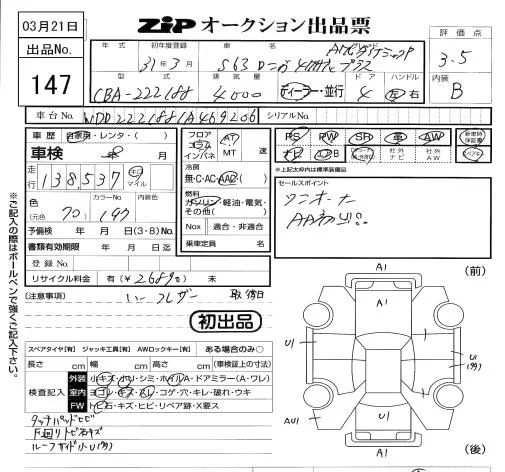 03月21日
ZIP オークション出品票
出品No.
147
年式 初年度登録 車名
31年3月 S63
評価点
3.5
型式 排気量 ドア ハンドル
CBA-222188 4000 ディーラー・並行 4 左 右
内装
B
車台No. WDD2221881A469206 シリアルNo.
車歴 自家用・レンタ・( )
車検 年 月
走行 138,537 キロ マイル
色 (元色 ) カラーNo. 197 内装色
予備検 年 月 日(3・8)No.
書類有効期限 年 月 日迄
登録No.
リサイクル料金 有(¥26890) 未
フロア コラム インパネ
AT MT 速
冷房
無・C・AC・AAC( )
燃料
ガソリン・軽油・電気・その他( )
Nox 適合・非適合
乗車定員 名
PS PW SR 革 AW
ナビ A/B
社外ナビ 社外AW
新車時保証書
※上記太枠内は標準装備品
セールスポイント
ワンオーナー
[注意事項]
初出品
スペアタイヤ[有] ジャッキ工具[有] AWロックキー[有] ある場合のみ○
長さ cm 幅 cm 高さ cm (車検証上の寸法)
検査記入
外装 小キズ・ホリ・シミ・ホイルA・ドアミラー(A・ワレ)
室内 ヨゴレ・キズ・スレ・コゲ・穴・キレ・破れ・ウキ
FW トビ石・キズ・ヒビ・リペア跡・X要ス
タッチパッドヒビ
下廻りトビ石キズ
※ご記入の際はボールペンで強くご記入下さい。
(前)
A1
A1
U1
U1
AU1
U1
A1
(後)